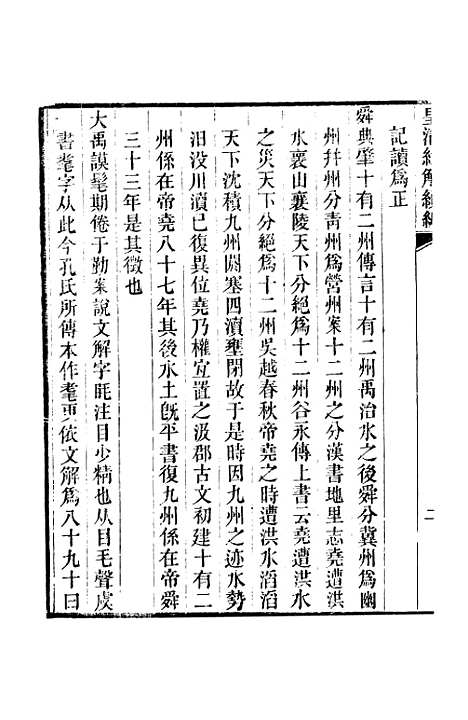 皇清經解續編
二
記讀爲正
舜典肇十有二州傳言十有二州禹治水之後舜分冀州爲幽
州幷州分靑州爲營州案十二州之分漢書地里志堯遭洪
水襄山襄陵天下分絕爲十二州谷永傳上書云堯遭洪水
之災天下分絕爲十二州吳越春秋帝堯之時遭洪水滔滔
天下沈積九州閼塞四瀆壅閉故于是時因九州之迹水勢
汨没川瀆已復異位堯乃權宜置之汲郡古文初建十有二
州係在帝堯八十七年其後水土旣平書復九州係在帝舜
三十三年是其徵也
大禹謨耄期倦于勤案說文解字眊注目少精也从目毛聲虞
書耄字从此今孔氏所傳本作耄更依文解爲八十九十曰